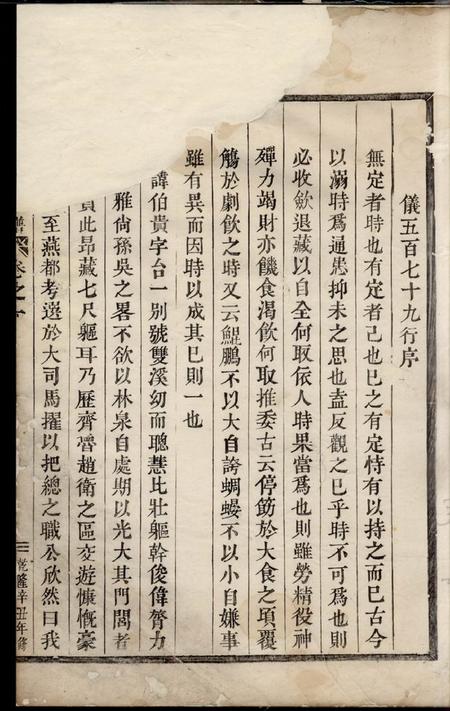 儀五百七十九行序
無定者時也有定者己也巳之有定恃有以持之而巳古今
以溺時爲通患抑未之思也盍反觀之巳乎時不可爲也則
必收斂退藏以自全何取依人時果當爲也則雖勞精役神
殫力竭財亦饑食渴飮何取推委古云停筯於大食之頃覆
觴於劇飮之時又云鯤鵬不以大自誇蜩蟃不以小自嫌事
雖有異而因時以成其巳則一也
諱伯貴字台一別號雙溪幼而聰慧比壯軀幹俊偉膂力
雅尙孫吳之畧不欲以林泉自處期以光大其門閭者
此昂藏七尺軀耳乃歷齊晉趙衛之區交遊慷慨豪
至燕都考選於大司馬擢以把總之職公欣然曰我
卷之
乾隆辛丑年修